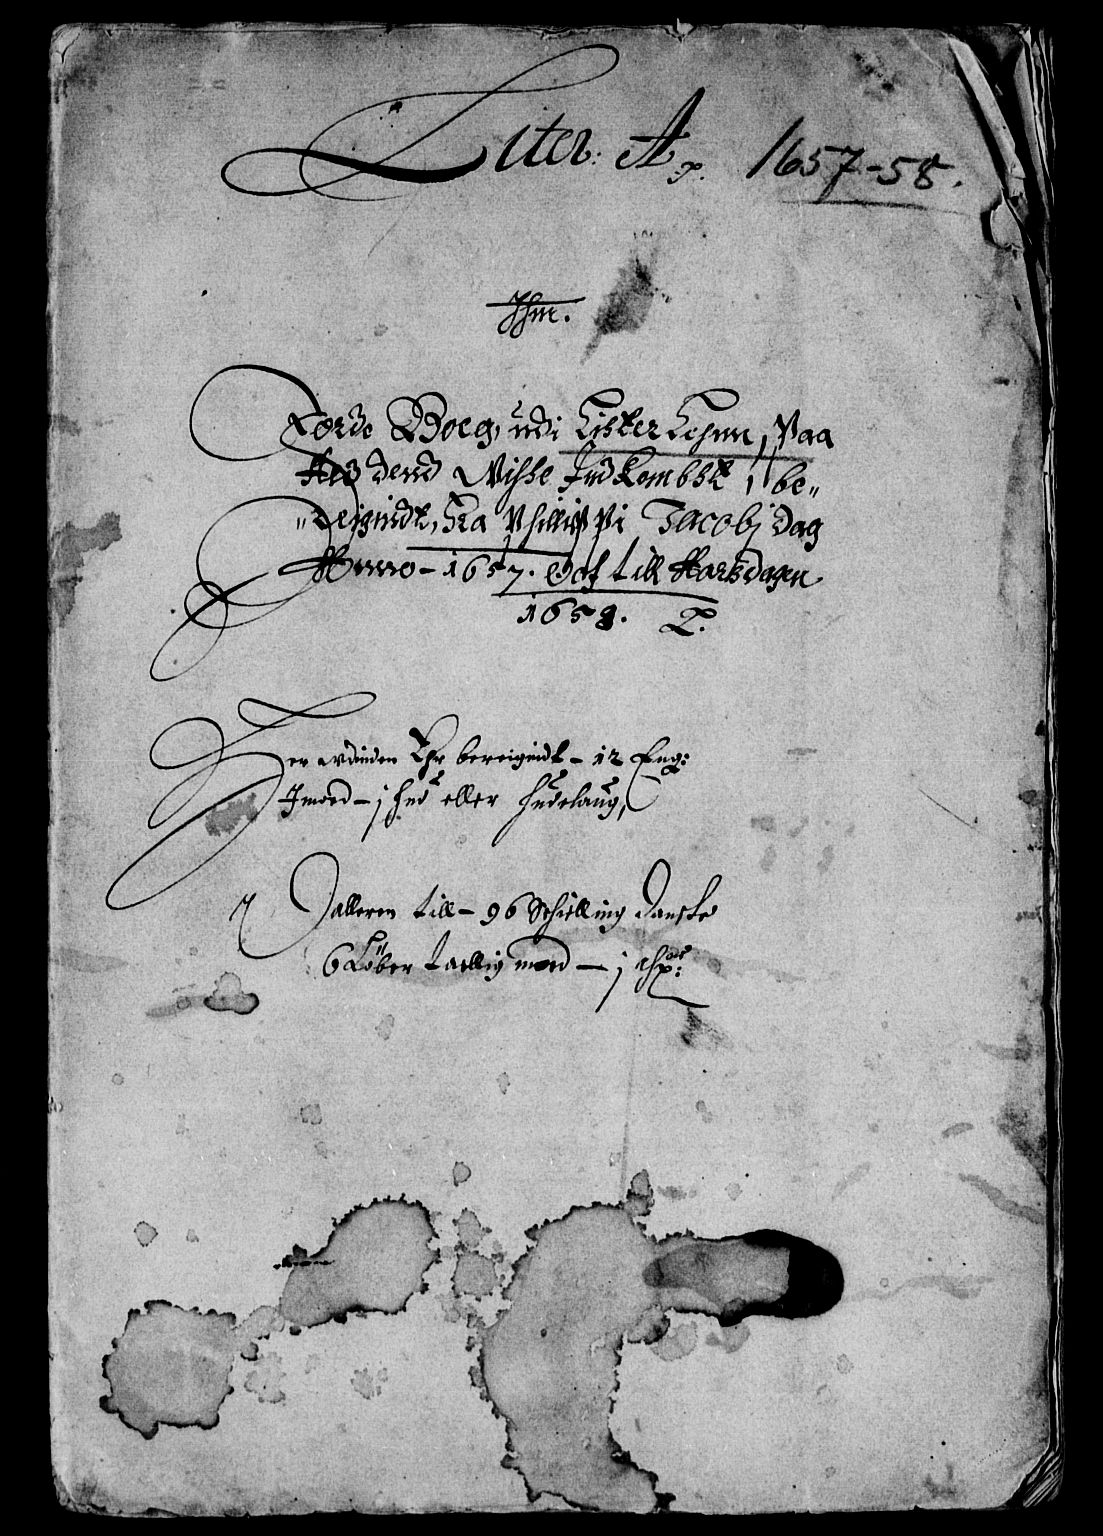 Liter: A p. 1657-58.
Jhm.
Jorde Boeg, udi Lister Lehnn, Paa
Als dend Wisse Indkombst, i be„
„Reignidt, Fra Phillippi Jacobj dag
Anno - 1657. Och till Aarsdagen
1658. p.
Her udinden Ehr bereignidt - 12 Eng:
Jmod - j hud eller hudelaug,
Dalleren till - 96 Schielling danske
6 Løber tallig moed - j chp: